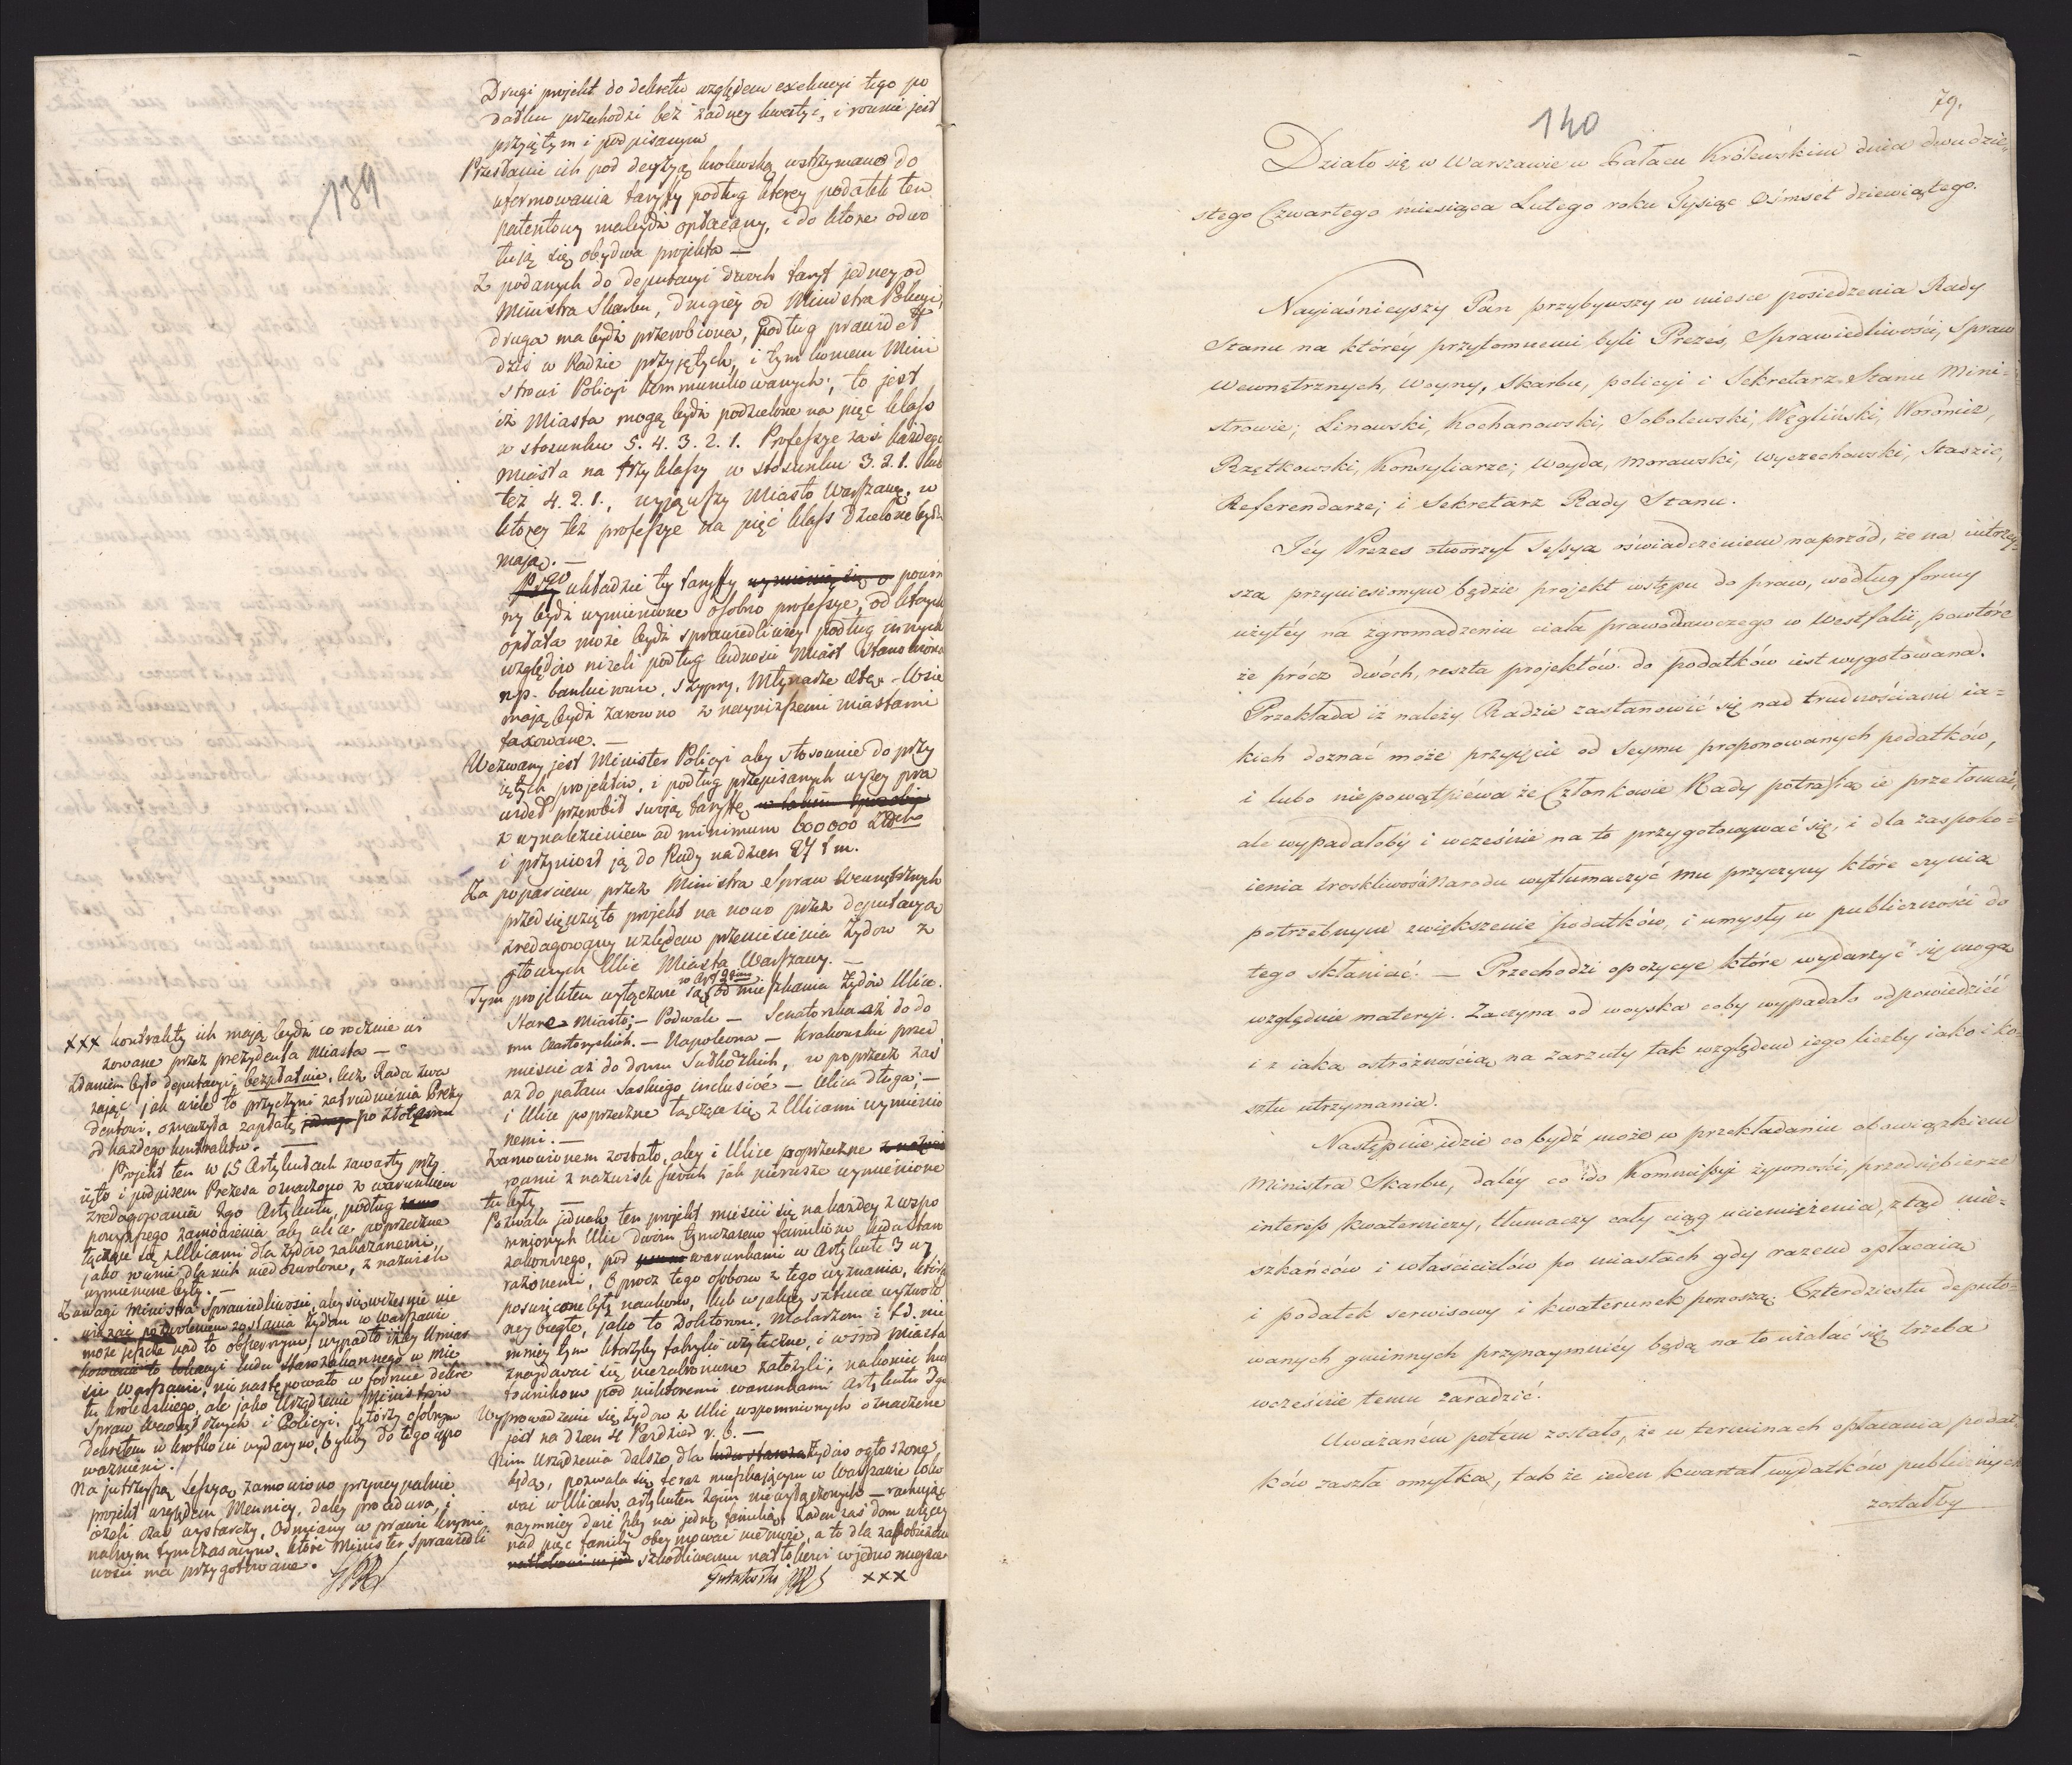 139
Drugi projekt do dekretu względem exekucyi tego po
datku przechodzi bez żadney kwestyi, i rownie jest
przyjętym i podpisanym
Przesłanie ich pod decyzyą krolewską wstrzymano do
uformowania taryffy podług ktorey podatek ten
patentowy ma bydź opłacany, i do ktore odwo
łują się obydwa projekta —
Z podanych do deputacyi dwoch taryf jedney od
Ministra Skarbu, drugiey od Ministra Policyi,
druga ma bydź przerobiona, podług prawideł
dziś w Radzie przyjętych, i tym koncem Mini
strowi Policyi kommunikowanych; to jest,
iż Miasta mogą bydź podzielone na pięć klass
w stosunku 5. 4. 3. 2. 1. Professye zaś każdego
Miasta na trzy klassy w stosunku 3. 2. 1. lub
też 4. 2. 1., wyjąwszy Miasto Warszawę, w
ktorey też professye na pięć klass dzielone bydź
mają. —
Przy układzie tey taryffy powin
ny bydź wymienione osobno professye, od ktorych
opłata może bydź sprawiedliwiey podług innych
względow niżeli podług ludności Miast stanowiona
n.p. bankierowie, Szypry, Młynarze etc. — Wsie
mają bydź zarowno z nayniższemi miastami
taxowane. —
Wezwany jest Minister Policyi aby stosownie do przy
iętych projektow, i podług przepisanych wyżey pra
wideł przerobił swoją taryffę w takim sposobie
z wynalezieniem ad minimum 600000 Złotych
i przyniosł ją do Rady na dzien 27 t. m.
Za poparciem przez Ministra Spraw Wewnętrznych
przedsięwzięto projekt na nowo przez deputacyą
zredagowany względem przeniesienia Żydow z
głownych Ulic Miasta Warszawy. —
Tym projektem wyłączone są w Art. 2gim od mieszkania Żydow Ulice.
Stare Miasto; — Podwale — Senatorska aż do do
mu Czartoryskich. — Napoleona — Krakowskie przed
mieście aż do domu , w poprzecz zaś
aż do pałacu Saskiego inclusive — Ulica długa; —
i Ulice poprzeczne łączące się z Ulicami wymienio
nemi. —
Zamowionem zostało, aby i Ulice poprzeczne
rownie z nazwisk swoich jak pierwsze wymienione
tu były
Pozwala jednak ten projekt mieścić się na każdey z wspo
mnionych Ulic dwom tymczasem familiom ludu staro
zakonnego, pod warunkami w Artykule 3 wy
rażonemi, Oprocz tego osobom z tego wyznania, ktore
poswięcone były naukom, lub w jakiey sztuce wyzwolo
ney biegłe, jako to Doktorom, Malarzom i t.d. nie
mniey tym ktorzyby fabryki użyteczne, i wsrod Miasta
znaydować się niezabronione założyli; nakoniec ku
townikom pod niektoremi warunkami Artykułu 3go
Wyprowadzenie się Żydow z Ulic wspomnionych oznaczone
jest na dzien 4 Paździer r. b. —
Nim urządzenia dalsze, dla ludu staroza Żydow ogłoszone,
będą, pozwala się teraz mieszkającym w Warszawie loko
wać w Ulicach, artykułem 2gim niewyłączonych — rachując
naymniey dwie izby na jedną familią, żaden zaś dom więcey
nad pięc familij obeymować niemoże, a to dla zapobieżenia
szkodliwemu natłokowi w jedno mieysce
Gutakowski XXX
XXX kontrakty ich mają bydź corocznie wi
zowane przez prezydenta Miasta —
Zdaniem było deputacyi, bezpłatnie, lecz Rada zwa
żając jak wiele to przyczyni zatrudnienia Prezy
dentowi, oznaczyła zapłatę po złotemu
od każdego kontraktu. —
Projekt ten w 15 Artykułach zawarty przy
ięto i podpisem Prezesa oznaczono z warunkiem
zredagowania 2go Artykułu, podług
powyższego zamowienia aby ulice poprzeczne
łączące się z Ulicami dla Żydow zakazanemi,
jako rownie dla nich niedozwolone, z nazwisk
wymienione były. —
Z uwagi Ministra Sprawiedliwości, aby się wcześnie nie
wiązać pozwoleniem zostania Żydom w Warszawie
może jeszcze nad to obszernym, wypadło iżby Umias
kowanie to lokacyi ludu starozakonnego w mie
ście Warszawie, nie następowało w formie dekre
tu krolewskiego, ale jako Urządzenie Ministrow
Spraw Wewnętrznych i Policyi, ktorzy osobnym
dekretem w krotkości wydanym, byliby do tego upo
ważnieni.
Na jutrzeyszą Sessyą zamowiono pryncypalnie
projekt względem Mennicy, daley procedura, i
ieżeli czas wystarczy, Odmiany w prawie krymi
nalnym tymczasowym, ktore Minister Sprawiedli
wości ma przygotowane.
140
79.
Działo się w Warszawie w Pałacu Królewskim dnia dwudzie-
stego Czwartego miesiąca Lutego roku Tysiąc Ośmset dziewiątego.
Nayiaśnieyszy Pan przybywszy w miesce posiedzenia Rady
Stanu na któréy przytomnemi byli Prezes, Sprawiedliwości, Spraw
Wewnętrznych, Woyny, Skarbu, policyi i Sekretarz Stanu Mini-
strowie; Linowski, Kochanowski, Sobolewski, Węgliński, Woronicz,
Rzętkowski, Konsyliarze; Woyda, Morawski, Wyczechowski, Staszic,
Referendarze; i Sekretarz Rady Stanu.
Jéy Prezes otworzył Sessyą oświadczeniem naprzód, że na iutrzey-
sza przyniesionym będzie projekt wstępu do praw, według formy
użytéy na zgromadzeniu ciała prawodawczego w Westfalii, powtóre
że prócz dwóch, reszta projektów do podatków iest wygotowana.
Przekłada iż należy Radzie zastanowić się nad trudnościami ia=
kich doznać może przyięcie od Seymu proponowanych podatków,
i lubo niepowątpiéwa że Członkowie Rady potrafią ie przełomać,
ale wypadałoby i wcześnie na to przygotowywać się, i dla zaspoko=
ienia troskliwości Narodu wytłumaczyć mu przyczyny które czynią
potrzebnym zwiększenie podatków, i umysły w publiczności do
tego skłaniać. — Przechodzi opozycye które wydarzyć się mogą
względnie materyi. Zaczyna od woyska coby wypadało odpowiedzieć
i z iaką ostróżnością na zarzuty tak względem iego liczby iako i ko-
sztu utrzymania.
Następnie idzie co bydź może w przekładaniu obowiązkiem
Ministra Skarbu, daléy co do Kommissyi żywności, przedsiębierze
interess kwaterniczy, tłumaczy cały ciąg uciemiężenia, ztąd mie-
szkańców i właścicielów po miastach gdy razem opłacaią
i podatek serwisowy i kwaterunek ponoszą. Czterdziestu deputo=
wanych gminnych przynaymniéy będą na to użalać się trzeba
wcześnie temu zaradzić.
Uważaném potém zostało, że w terminach opłacania podat
ków zaszła omyłka, tak że ieden kwartał wydatków publicznych
zostałby